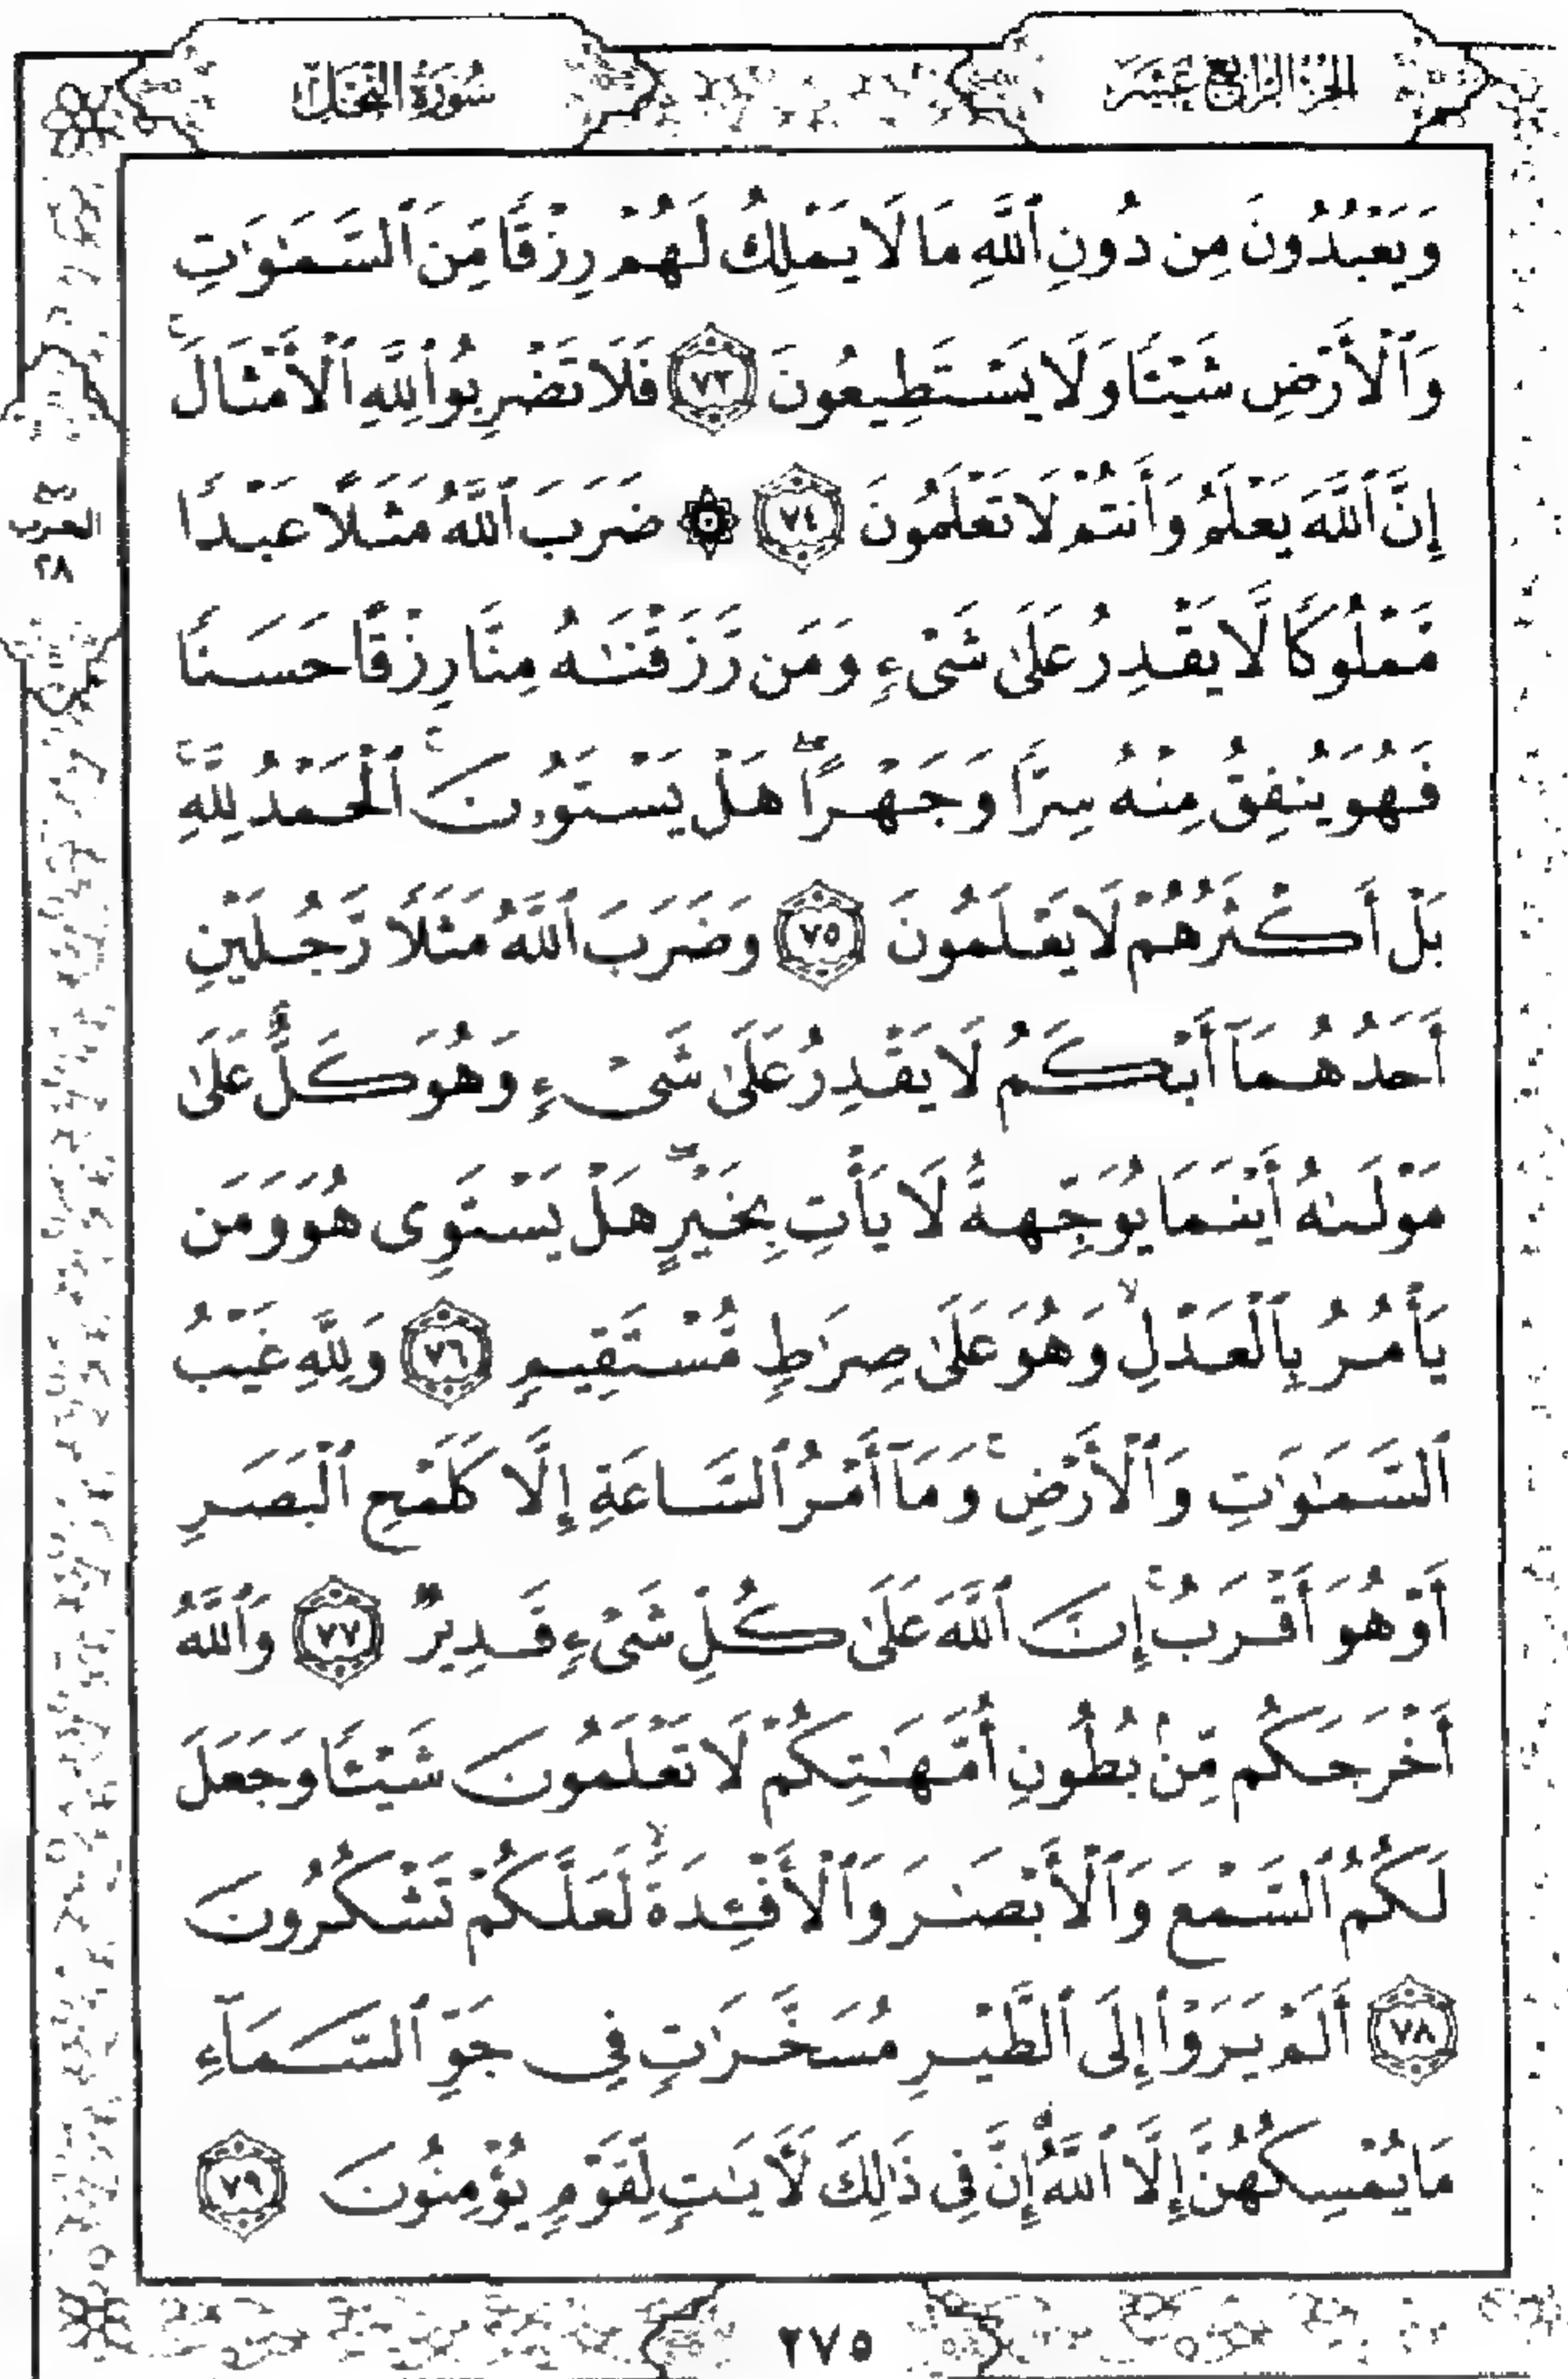 الجزء الرابع عشر
سورة النحل
وَيَعْبُدُونَ مِن دُونِ ٱللَّهِ مَا لَا يَمْلِكُ لَهُمْ رِزْقًا مِّنَ ٱلسَّمَٰوَٰتِ
وَٱلْأَرْضِ شَيْـًٔا وَلَا يَسْتَطِيعُونَ ﴿٧٣﴾ فَلَا تَضْرِبُوا۟ لِلَّهِ ٱلْأَمْثَالَ ۚ
إِنَّ ٱللَّهَ يَعْلَمُ وَأَنتُمْ لَا تَعْلَمُونَ ﴿٧٤﴾ ۞ ضَرَبَ ٱللَّهُ مَثَلًا عَبْدًا
الحزب
٢٨
مَّمْلُوكًا لَّا يَقْدِرُ عَلَىٰ شَىْءٍ وَمَن رَّزَقْنَٰهُ مِنَّا رِزْقًا حَسَنًا
فَهُوَ يُنفِقُ مِنْهُ سِرًّا وَجَهْرًا ۖ هَلْ يَسْتَوُۥنَ ۚ ٱلْحَمْدُ لِلَّهِ ۚ
بَلْ أَكْثَرُهُمْ لَا يَعْلَمُونَ ﴿٧٥﴾ وَضَرَبَ ٱللَّهُ مَثَلًا رَّجُلَيْنِ
أَحَدُهُمَآ أَبْكَمُ لَا يَقْدِرُ عَلَىٰ شَىْءٍ وَهُوَ كَلٌّ عَلَىٰ
مَوْلَىٰهُ أَيْنَمَا يُوَجِّههُّ لَا يَأْتِ بِخَيْرٍ ۖ هَلْ يَسْتَوِى هُوَ وَمَن
يَأْمُرُ بِٱلْعَدْلِ ۙ وَهُوَ عَلَىٰ صِرَٰطٍ مُّسْتَقِيمٍ ﴿٧٦﴾ وَلِلَّهِ غَيْبُ
ٱلسَّمَٰوَٰتِ وَٱلْأَرْضِ ۚ وَمَآ أَمْرُ ٱلسَّاعَةِ إِلَّا كَلَمْحِ ٱلْبَصَرِ
أَوْ هُوَ أَقْرَبُ ۚ إِنَّ ٱللَّهَ عَلَىٰ كُلِّ شَىْءٍ قَدِيرٌ ﴿٧٧﴾ وَٱللَّهُ
أَخْرَجَكُم مِّنۢ بُطُونِ أُمَّهَٰتِكُمْ لَا تَعْلَمُونَ شَيْـًٔا وَجَعَلَ
لَكُمُ ٱلسَّمْعَ وَٱلْأَبْصَٰرَ وَٱلْأَفْـِٔدَةَ ۙ لَعَلَّكُمْ تَشْكُرُونَ
﴿٧٨﴾ أَلَمْ يَرَوْا۟ إِلَى ٱلطَّيْرِ مُسَخَّرَٰتٍ فِى جَوِّ ٱلسَّمَآءِ
مَا يُمْسِكُهُنَّ إِلَّا ٱللَّهُ ۗ إِنَّ فِى ذَٰلِكَ لَـَٔايَٰتٍ لِّقَوْمٍ يُؤْمِنُونَ ﴿٧٩﴾
٢٧٥